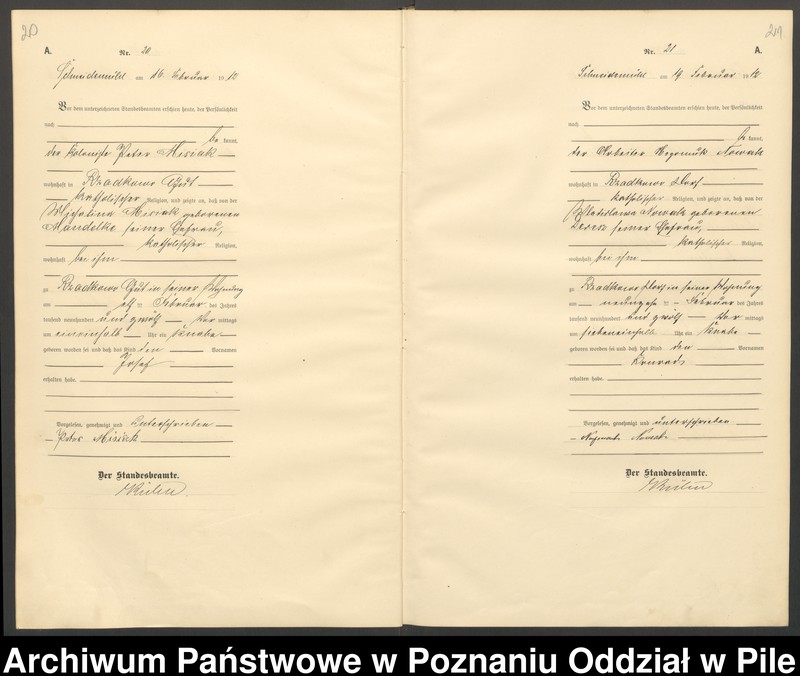 20
A.
Nr. 20
Schneidemühl am 16. Februar 1912
Vor dem unterzeichneten Standesbeamten erschien heute, der Persönlichkeit
nach
be kannt,
der Peter Misiak
wohnhaft in Rzadkowo Gut
katholischer Religion, und zeigte an, daß von der
Misiak geborenen
seiner Ehefrau,
katholischer Religion,
wohnhaft bei ihm
zu Rzadkowo Gut in seiner Wohnung
am elf ten Februar des Jahres
tausend neunhundert und zwölf Vor mittags
um eineinhalb Uhr ein Knabe
geboren worden sei und daß das Kind den Vornamen
Josef
erhalten habe.
Vorgelesen, genehmigt und unterschrieben
Peter Misiak
Der Standesbeamte.
21
Nr. 21
A.
Schneidemühl am 19 Februar 1912
Vor dem unterzeichneten Standesbeamten erschien heute, der Persönlichkeit
nach
be kannt,
der Arbeiter Nowak
wohnhaft in Rzadkowo Dorf
katholischer Religion, und zeigte an, daß von der
Nowak geborenen
seiner Ehefrau,
katholischer Religion,
wohnhaft bei ihm
zu Rzadkowo Dorf in seiner Wohnung
am neunzehnten Februar des Jahres
tausend neunhundert und zwölf Vor mittags
um siebeneinhalb Uhr ein Knabe
geboren worden sei und daß das Kind den Vornamen
Konrad
erhalten habe.
Vorgelesen, genehmigt und unterschrieben
Nowak
Der Standesbeamte.
Archiwum Państwowe w Poznaniu Oddział w Pile